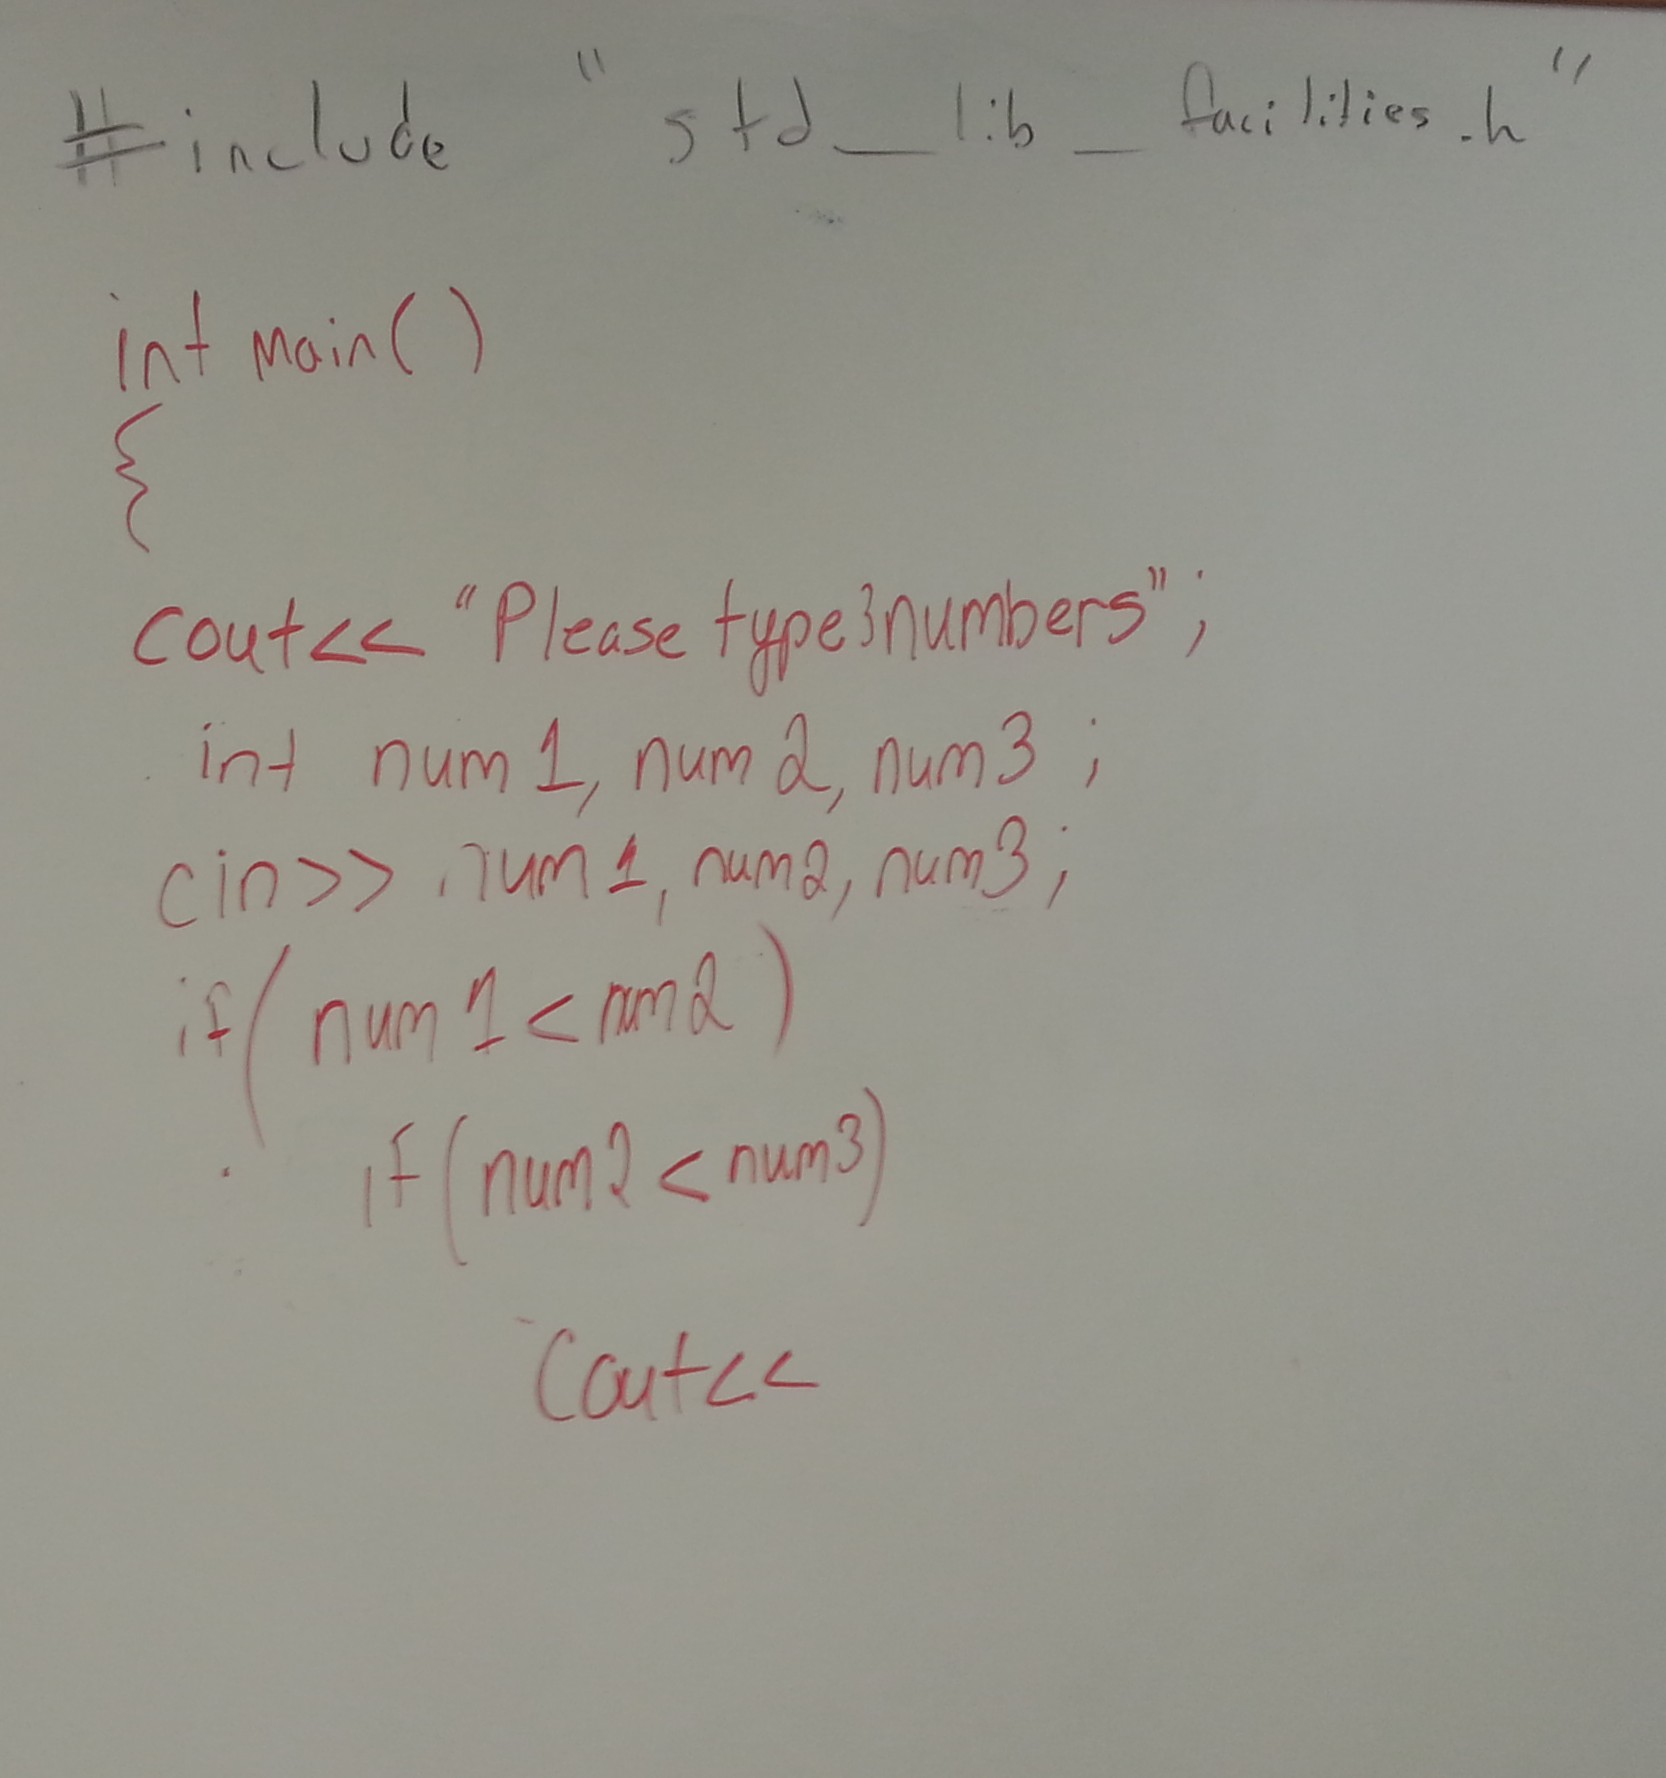 #include "std_lib_facilities.h"
int main()
{
cout<< "Please type 3 numbers";
int num1, num2, num3;
cin>> num1, num2, num3;
if(num1<num2)
if(num2<num3)
cout<<